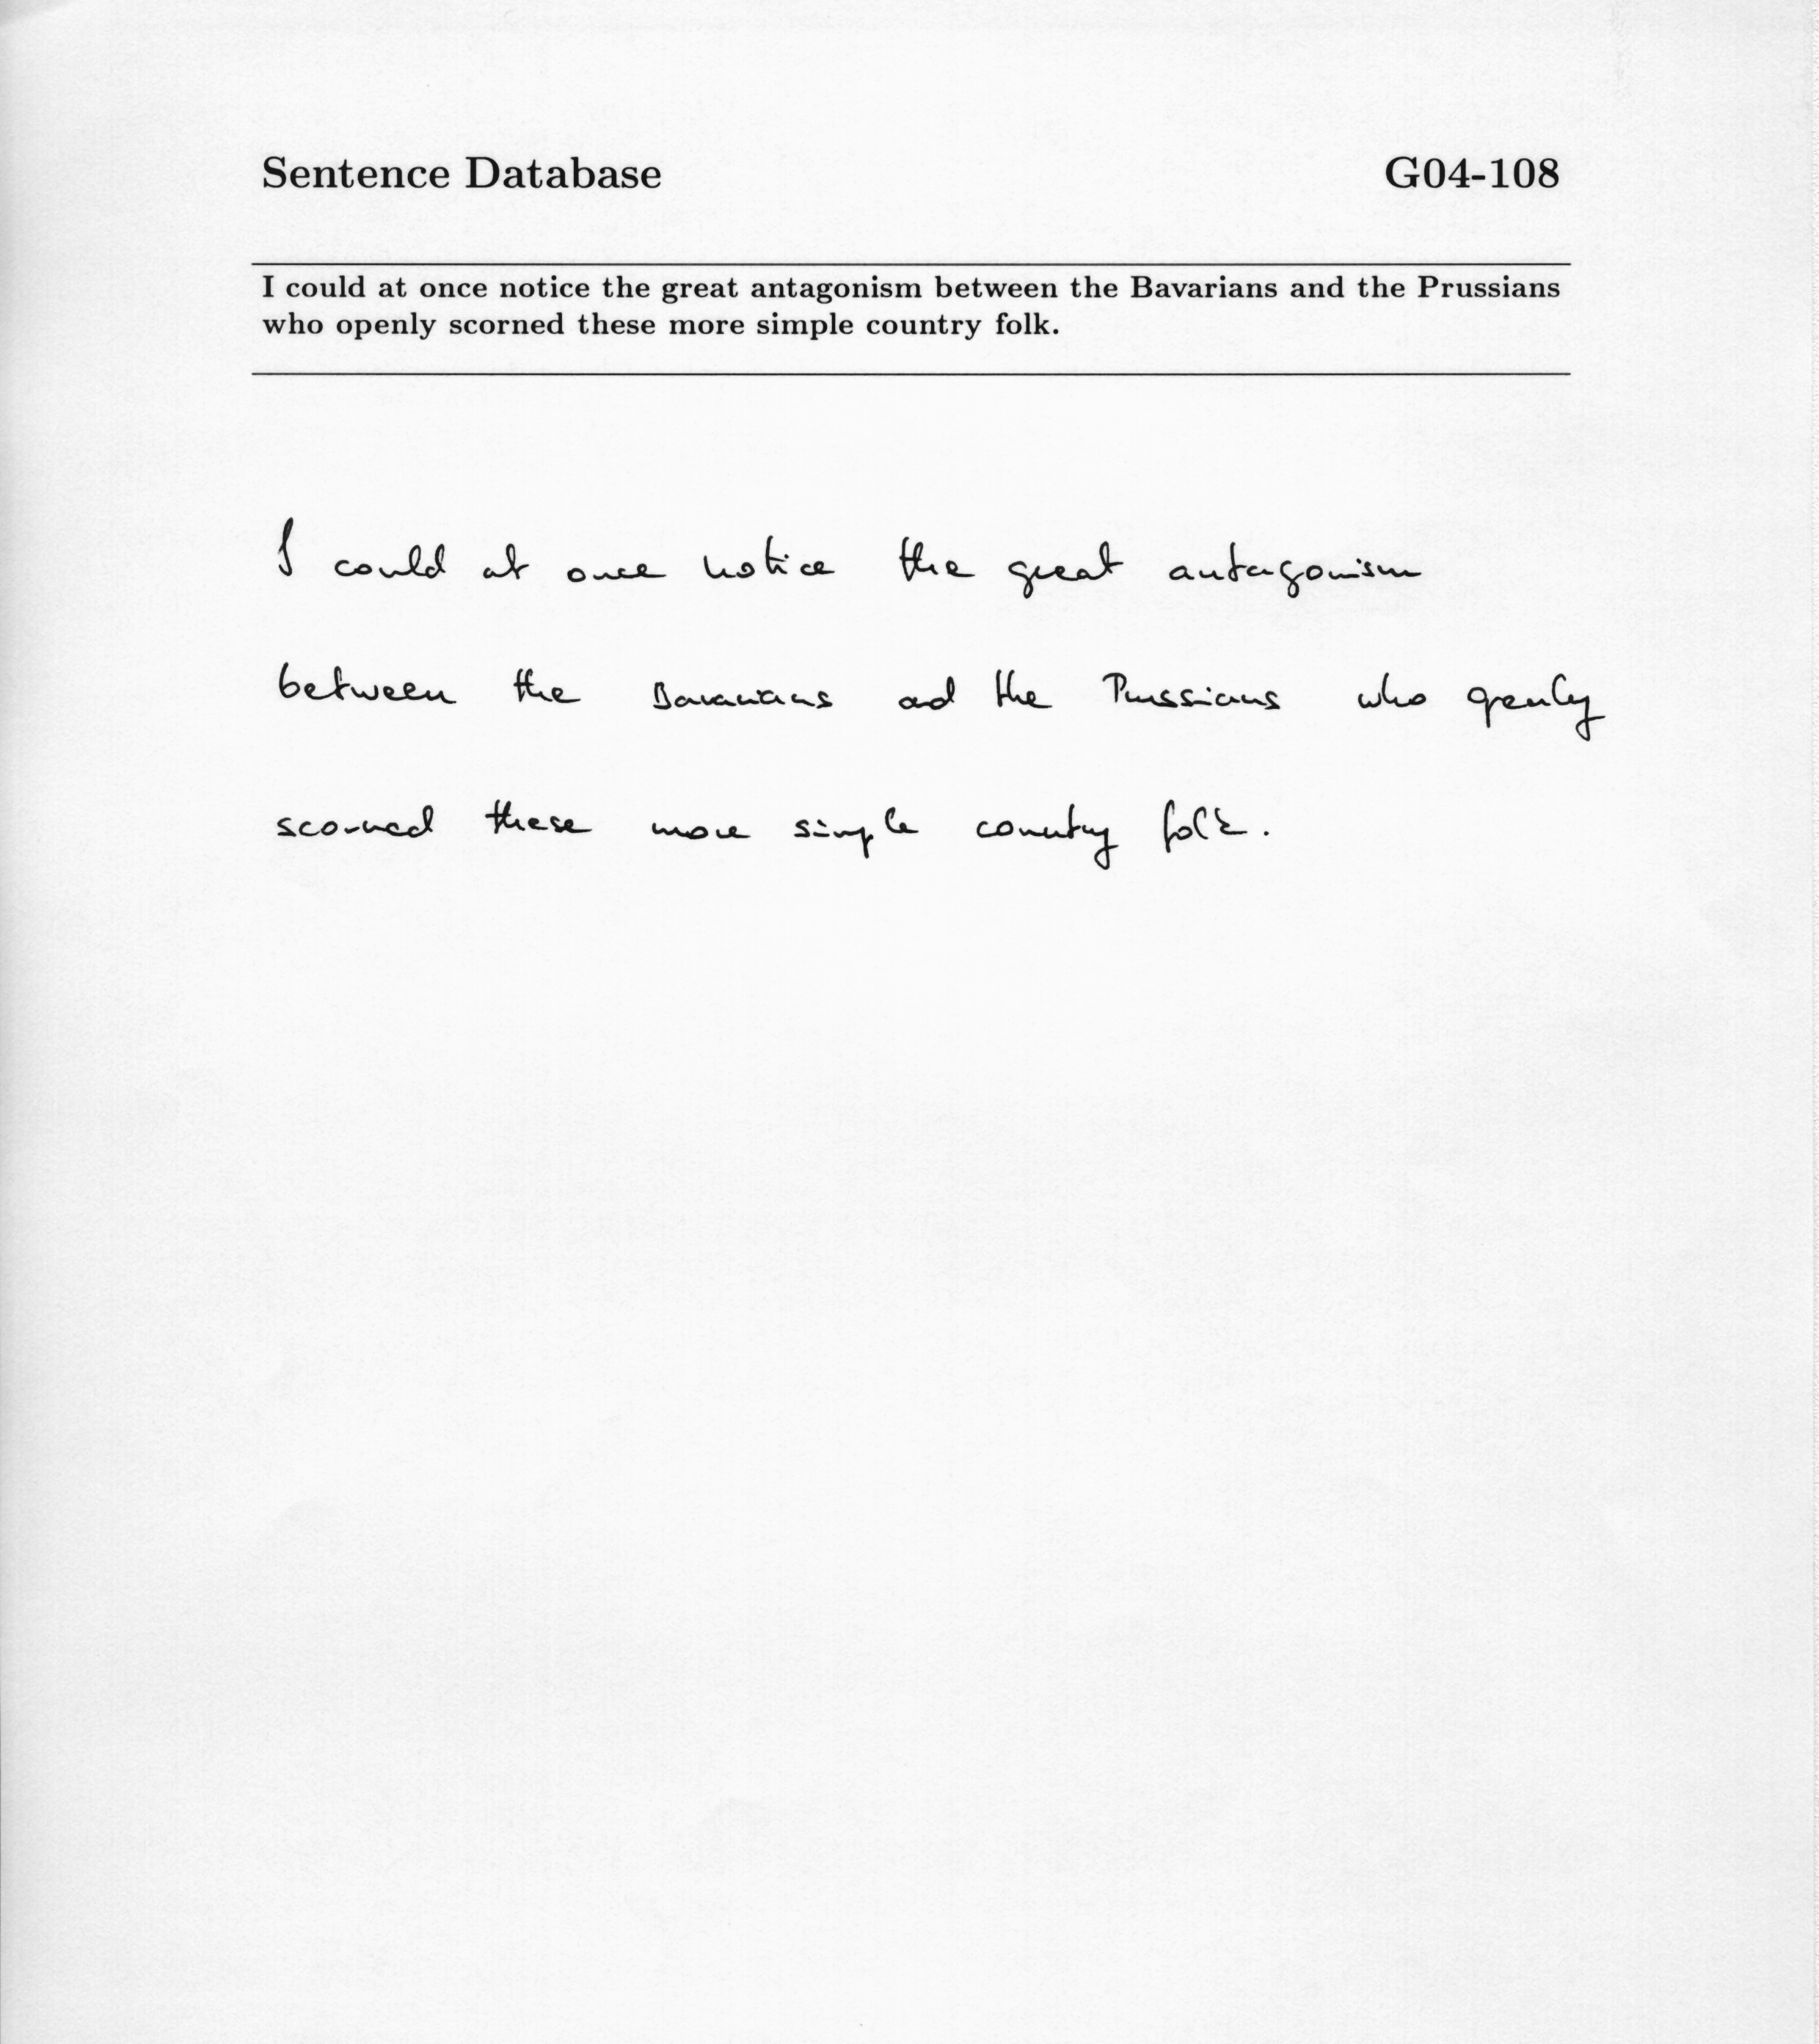 Sentence Database G04-108
I could at once notice the great antagonism between the Bavarians and the Prussians
who openly scorned these more simple country folk.
I could at once notice the great antagonism
between the Bavarians and the Prussians who openly
scorned these more simple country folk.